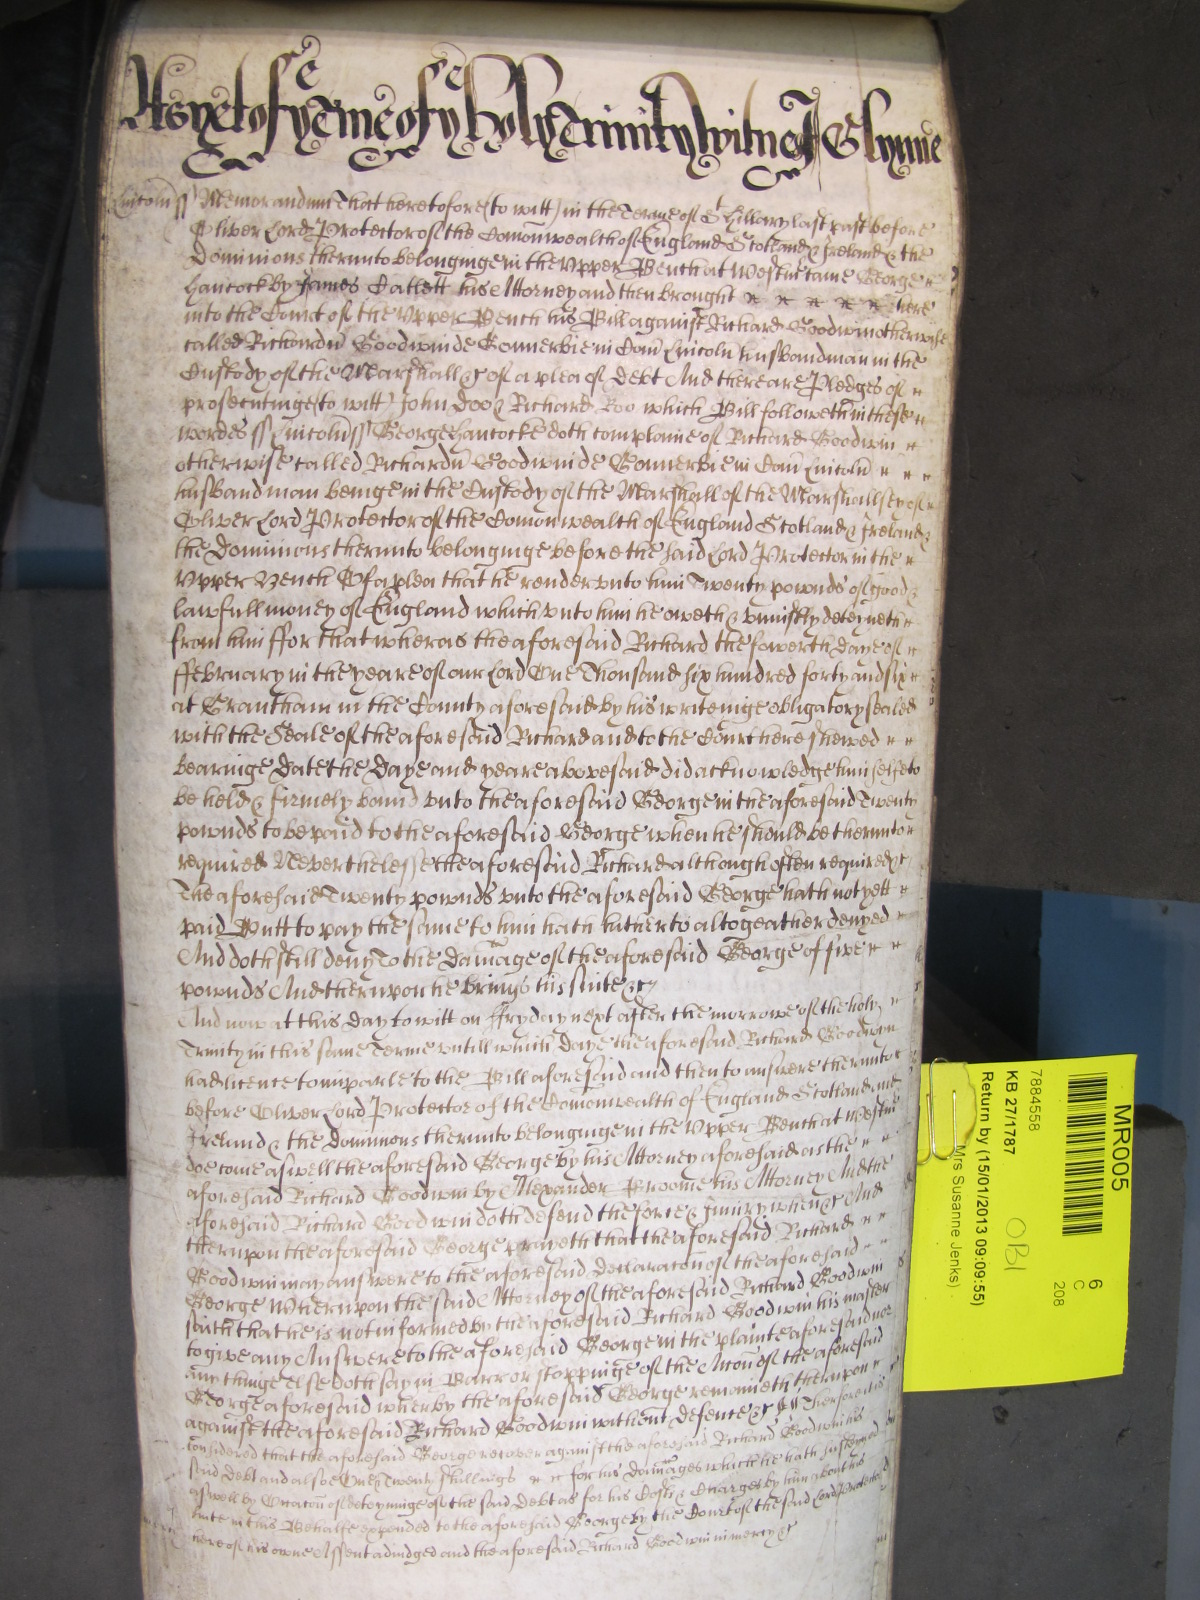 As yet of ye Terme of ye holy Trinity witnes J Glynne
Lincoln ss Memorandum That heretofore (to witt) in the Terme of St Hillary last past before
Oliver Lord Protector of the Comonwealth of England Scotland & Ireland & the
Dominions thereunto belonginge in the Upper Bench at Westm came George
Hancock by James Catlett his Attorney and then brought there
into the Court of the Upper Bench his Bill against Richard Goodwin otherwise
called Richardu Goodwin de Gonnerbie in Com Lincoln husbandman in the
Custody of the Marshall &c of a plea of Debt And there are Pledges of
prosecutinge (to witt) John Doo & Richard Roo which Bill followeth in these
wordes ss Lincoln ss George Hancocke doth complaine of Richard Goodwin
otherwise called Richardu Goodwin de Gonnerbie in Com Lincoln
husbandman beinge in the Custody of the Marshall of the Marshallsey of
Oliver Lord Protector of the Comonwealth of England Scotland & Ireland &
the Dominions thereunto belonginge before the said Lord Protector in the
Upper Bench Of a plea that he render unto him Twenty pownds of good &
lawfull money of England which unto him he oweth & uniustly deteyneth
from him ffor that wheras the aforesaid Richard the fowerth daye of
ffebruary in the yeare of our Lord One Thousand six hundred forty and six
at Grantham in the County aforesaid by his writeinge obligatory sealed
with the Seale of the aforesaid Richard and to the Court here shewed
bearinge Date the Daye and yeare abovesaid did acknowledge himselfe to
be held & firmely bound unto the aforesaid George in the aforesaid Twenty
pownds to be paid to the aforesaid George when he should be therunto
required Neverthelesse the aforesaid Richard although often required &c
The aforesaid Twenty pownds unto the aforesaid George hath not yett
paid Butt to pay the same to him hath hitherto altogeather denyed
And doth still deny To the Damage of the aforesaid George of five
pownds And therupon he brings his suite &c
And now at this Day to witt on ffryday next after the morrowe of the holy
Trinity in this same Terme untill which Daye the aforesaid Richard Goodwyn
had licence to imparle to the Bill aforesaid and then to answere therunto
before Oliver Lord Protector of the Comonwealth of England Scotland and
Ireland & the Dominions therunto belonginge in the Upper Bench at Westm
doe come aswell the aforesaid George by his Attorney aforesaid as the
aforesaid Richard Goodwin by Alexander Proome his Attorney And the
aforesaid Richard Goodwin doth defend the force & Iniury when &c And
therupon the aforesaid George prayeth that the aforesaid Richard
Goodwin may answere to the aforesaid Declaracon of the aforesaid
George Wherupon the said Attorney of the aforesaid Richard Goodwin
saith that he is not informed by the aforesaid Richard Goodwin his master
to give any Answere to the aforesaid George in the plainte aforesaid nor
any thinge else doth say in Barr or stoppinge of the Accon of the aforesaid
George aforesaid wherby the aforesaid George remaineth therupon
against the aforesaid Richard Goodwin without Defence &c Therfore it is
considered that the aforesaid George recover against the aforesaid Richard Goodwin his
said Debt and alsoe Twenty shillings for his Damages which he hath susteyned
aswell by Occacon of deteyninge of the said Debt as for his Costs & Charges by him about his
suite in this Behalfe expended to the aforesaid George by the Court of the said Lord Protector
here of his owne Assent adiudged and the aforesaid Richard Goodwin in mercy &c
MR005
6
C
208
7884558
OBI
KB 27/1787
Return by (15/01/2013 09:09:55)
Mrs Susanne Jenks)